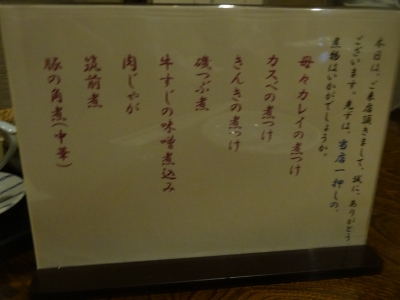 本日は、ご来店頂きまして、誠に、ありがとう
ございます。先ずは、当店一押しの、
煮物はいかがでしょうか。
母々カレイの煮つけ
カスベの煮つけ
きんきの煮つけ
磯つぶ煮
牛すじの味噌煮込み
肉じゃが
筑前煮
豚の角煮(中華)